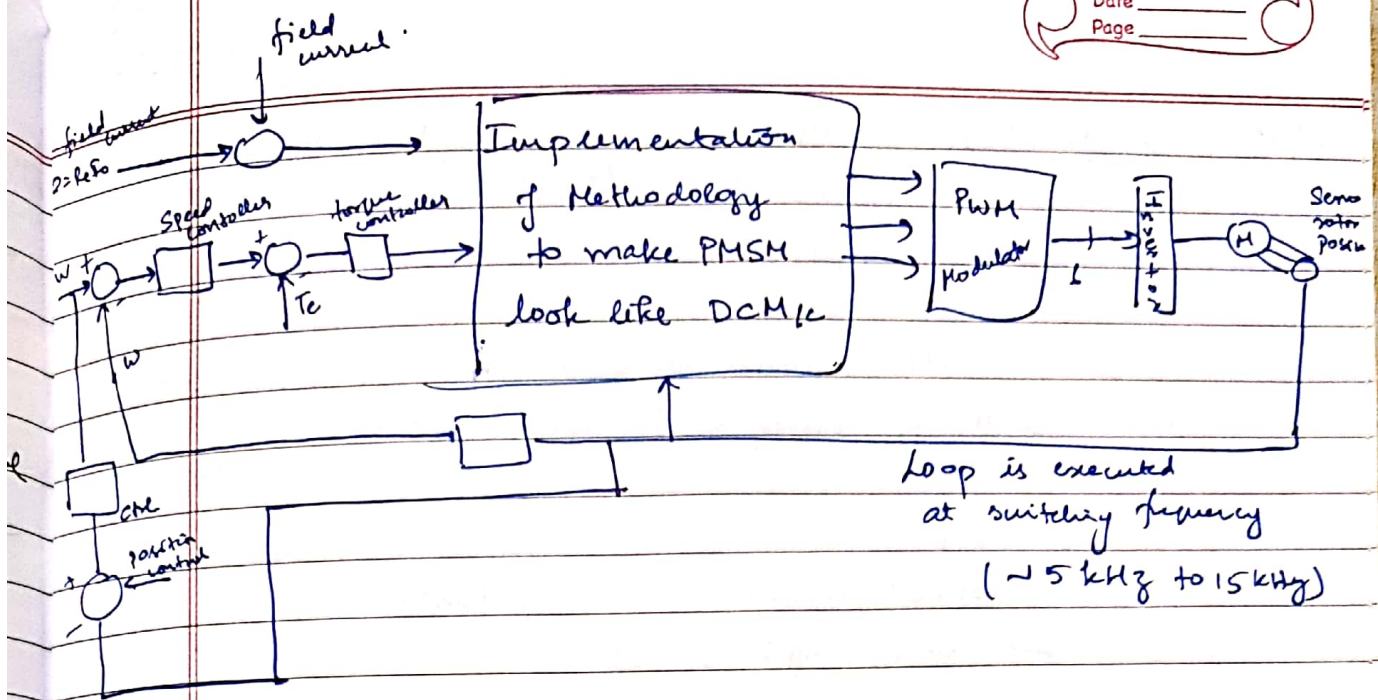 Date
Page
field
current.
field current
Speed
controller
torque
controller
+
+
W
+
-
Te
W
Implementation
of Methodology
to make PMSM
look like DCM/c
PWM
Modulator
6
Inverter
M
Servo
rotor
Position
Loop is executed
at switching frequency
(~5 kHz to 15 kHz)
ctrl
position
control
+
-